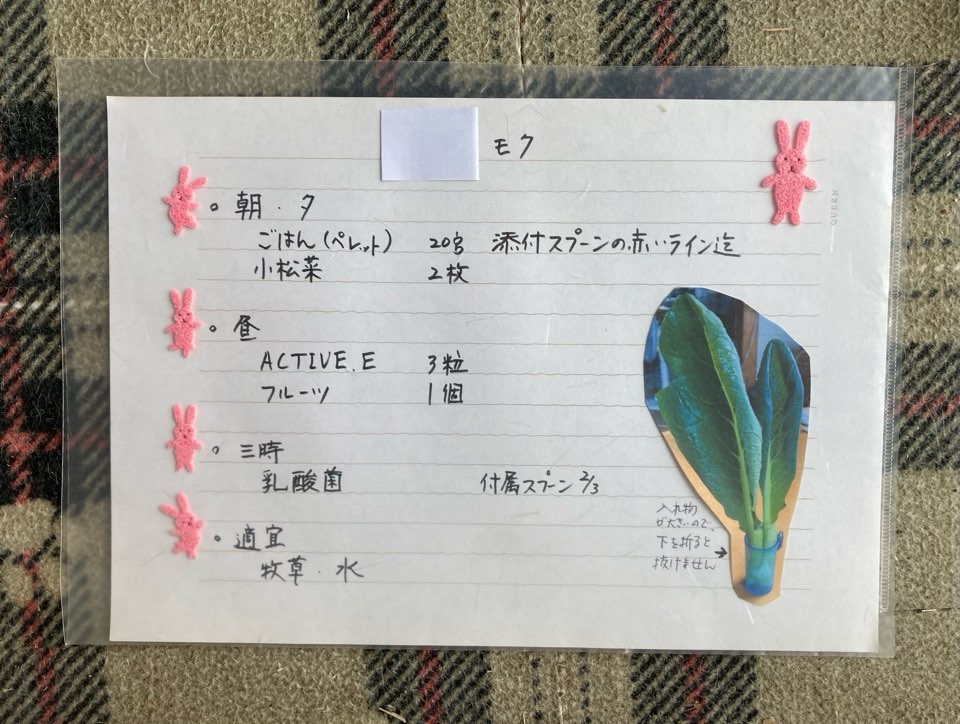 モク
QUEEN
。朝・夕
ごはん(ペレット) 20g 添付スプーンの赤いライン迄
小松菜 2枚
。昼
ACTIVE.E 3粒
フルーツ 1個
。三時
乳酸菌 付属スプーン 2/3
。適宜
牧草・水
入れ物
が大きいので、
下を折ると
抜けません